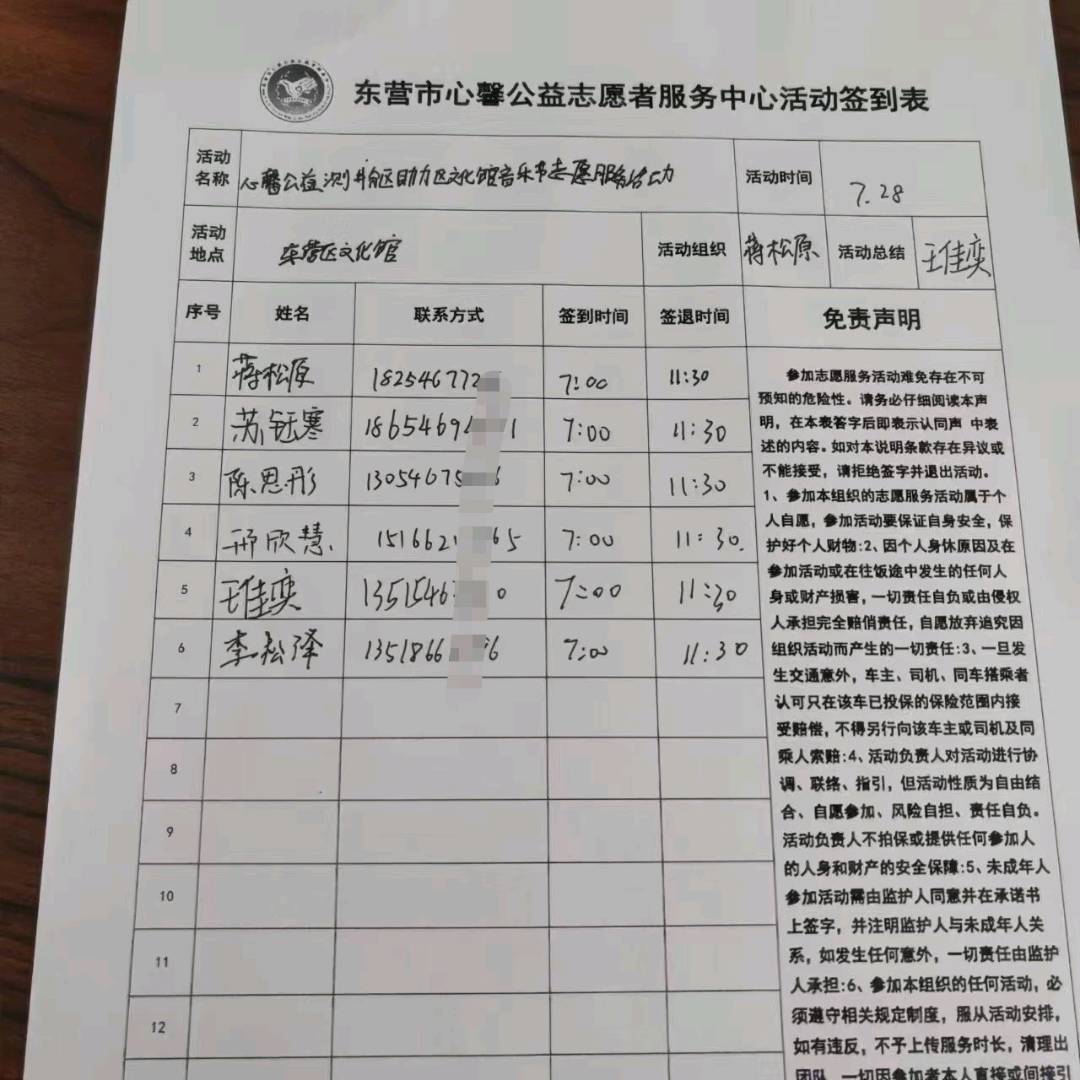 东营市心馨公益志愿者服务中心活动签到表
活动名称 心馨公益测井社区助力区文化馆音乐节志愿服务活动 活动时间 7.28
活动地点 东营区文化馆 活动组织 蒋松原 活动总结 王佳奕
序号 姓名 联系方式 签到时间 签退时间 免责声明
1 蒋松原 182546772 7:00 11:30
2 苏钰寒 18654694 1 7:00 11:30
3 陈思彤 13054675 6 7:00 11:30
4 邢欣慧 151662 65 7:00 11:30.
5 王佳奕 1351546 0 7:00 11:30
6 李松泽 1351866 6 7:00 11:30
7
8
9
10
11
12
参加志愿服务活动难免存在不可
预知的危险性。请务必仔细阅读本声
明，在本表答字后即表示认同声 中表
述的内容。如对本说明条款存在异议或
不能接受，请拒绝签字并退出活动。
1、参加本组织的志愿服务活动属于个
人自愿，参加活动要保证自身安全，保
护好个人财物:2、因个人身休原因及在
参加活动或在往饭途中发生的任何人
身或财产损害，一切责任自负或由侵权
人承担完全赔俏责任，自愿放弃追究因
组织活动而产生的一切责任:3、一旦发
生交通意外，车主、司机、同车搭乘者
认可只在该车已投保的保险范围内接
受赔偿，不得另行向该车主或司机及同
乘人索赔:4、活动负责人对活动进行协
调、联络、指引，但活动性质为自由结
合、自愿参加、风险自担、责任自负。
活动负责人不拍保或提供任何参加人
的人身和财产的安全保障:5、未成年人
参加活动需由监护人同意并在承诺书
上签字，并注明监护人与未成年人关
系，如发生任何意外，一切责任由监护
人承担:6、参加本组织的任何活动，必
须遵守相关规定制度，服从活动安排，
如有违反，不予上传服务时长，清理出
团队，一切因参加者本人直接或间接引